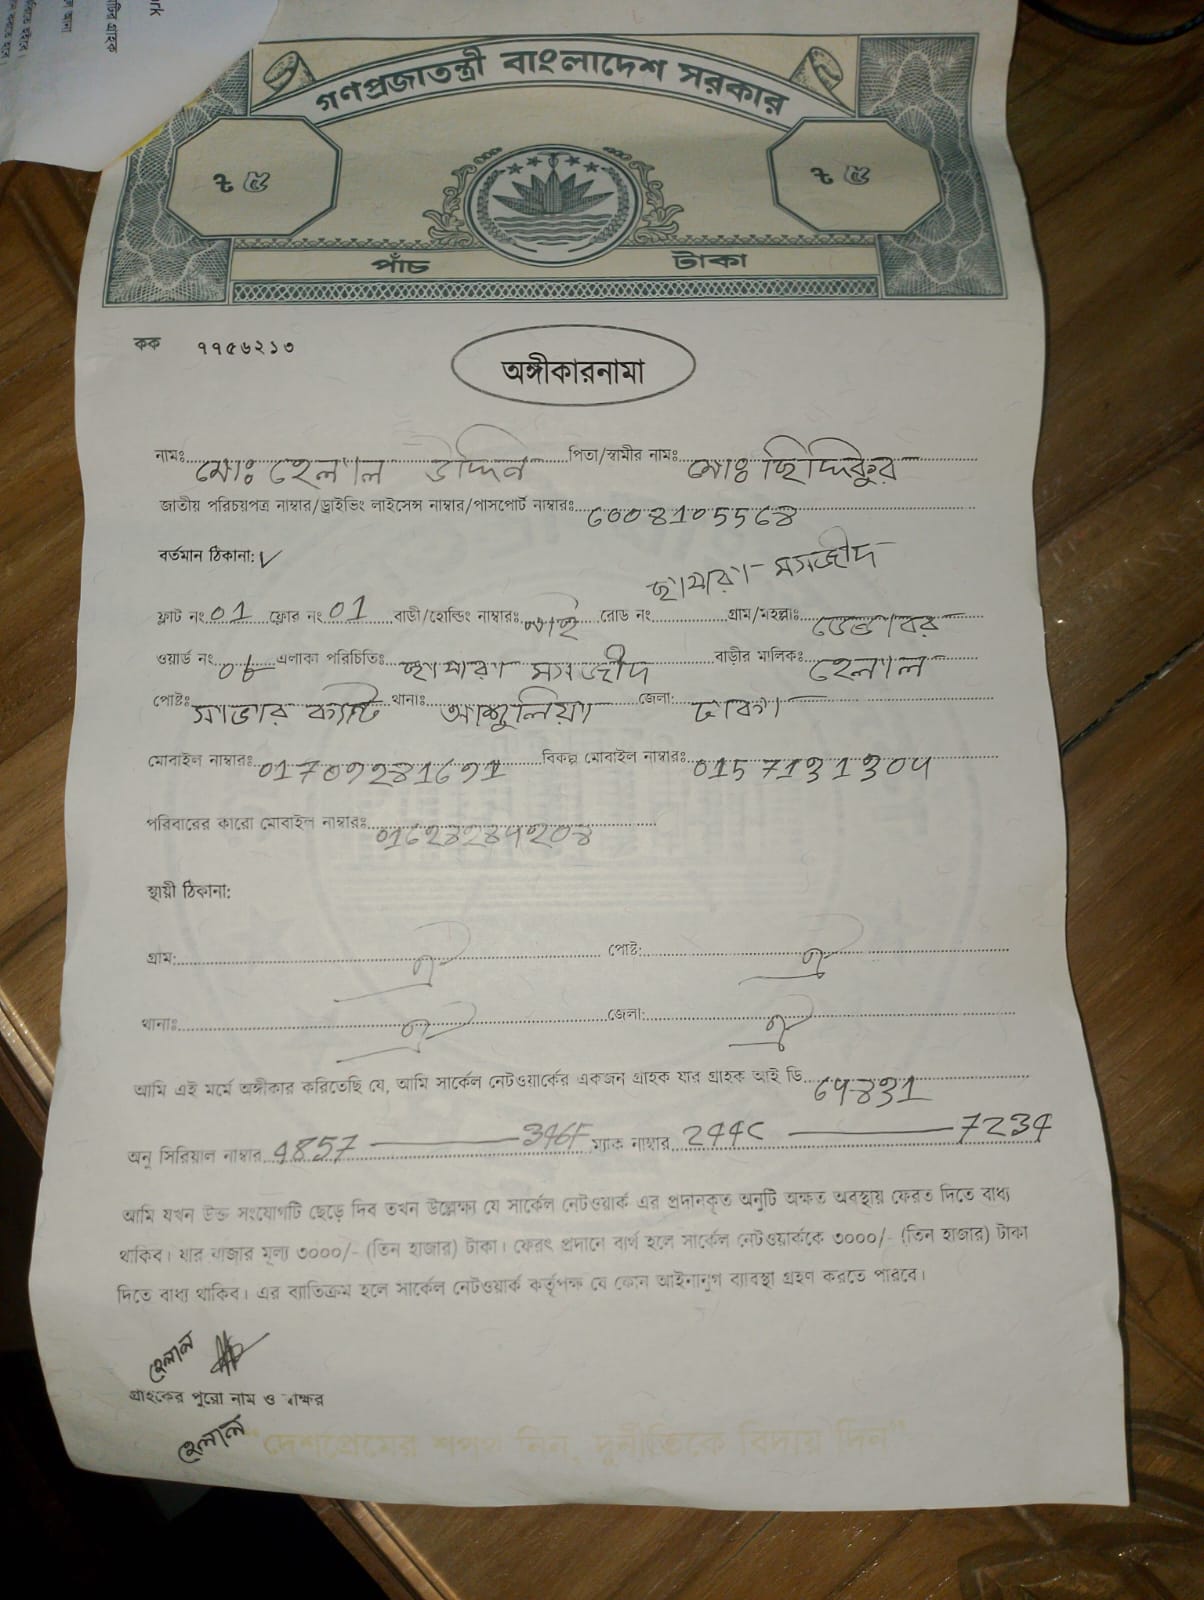 গণপ্রজাতন্ত্রী বাংলাদেশ সরকার
৳ ৫ ৳ ৫
পাঁচ টাকা
কক ৭৭৫৬২১৩
অঙ্গীকারনামা
নামঃ মোঃ হেলাল উদ্দিন পিতা/স্বামীর নামঃ মোঃ ছিদ্দিকুর
জাতীয় পরিচয়পত্র নাম্বার/ড্রাইভিং লাইসেন্স নাম্বার/পাসপোর্ট নাম্বারঃ
বর্তমান ঠিকানা: ✓
মসজীদ
ফ্লাট নং 01 ফ্লোর নং 01 বাড়ী/হোল্ডিং নাম্বারঃ নাই রোড নং গ্রাম/মহল্লাঃ ডেন্ডাবর
ওয়ার্ড নং এলাকা পরিচিতিঃ মসজীদ বাড়ীর মালিকঃ হেলাল
পোষ্টঃ সাভার ক্যান্ট থানাঃ আশুলিয়া জেলা: ঢাকা
মোবাইল নাম্বারঃ বিকল্প মোবাইল নাম্বারঃ
পরিবারের কারো মোবাইল নাম্বারঃ
স্থায়ী ঠিকানা:
গ্রাম: ঐ পোষ্ট: ঐ
থানাঃ ঐ জেলা: ঐ
আমি এই মর্মে অঙ্গীকার করিতেছি যে, আমি সার্কেল নেটওয়ার্কের একজন গ্রাহক যার গ্রাহক আই ডি
অনু সিরিয়াল নাম্বার 4857 — 346F ম্যাক নাম্বার 244C — 7234
আমি যখন উক্ত সংযোগটি ছেড়ে দিব তখন উল্লেক্ষ্য যে সার্কেল নেটওয়ার্ক এর প্রদানকৃত অনুটি অক্ষত অবস্থায় ফেরত দিতে বাধ্য
থাকিব। যার বাজার মূল্য ৩০০০/- (তিন হাজার) টাকা। ফেরৎ প্রদানে ব্যর্থ হলে সার্কেল নেটওয়ার্ককে ৩০০০/- (তিন হাজার) টাকা
দিতে বাধ্য থাকিব। এর ব্যাতিক্রম হলে সার্কেল নেটওয়ার্ক কর্তৃপক্ষ যে কোন আইনানুগ ব্যাবস্থা গ্রহণ করতে পারবে।
হেলাল
গ্রাহকের পুরো নাম ও স্বাক্ষর
হেলাল
"দেশপ্রেমের শপথ নিন, দুর্নীতিকে বিদায় দিন"